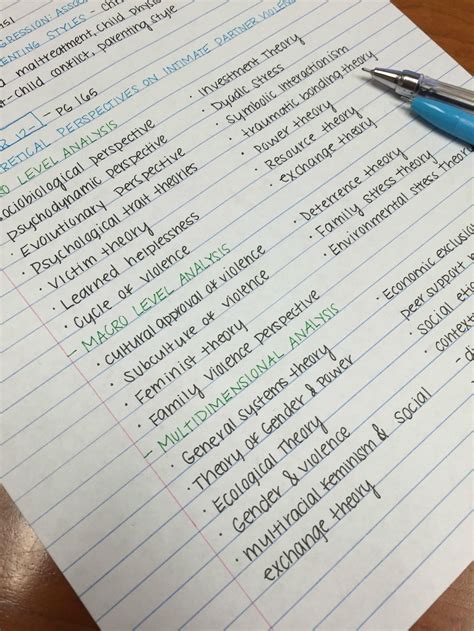 RESSION: ASSOC
ENTING STYLES - chr
maltreatment, child physic
child conflict, parenting style
12 - PG 165
RETICAL PERSPECTIVES ON INTIMATE PARTNER VIOLEN
RO LEVEL ANALYSIS
ociobiological perspective
Psychodynamic perspective
Evolutionary perspective
• Psychological trait theories
• Victim theory
• Learned helplessness
• Cycle of violence
• Investment Theory
• Dyadic stress
• Symbolic interactionism
• traumatic bonding theory
• Power theory
• Resource theory
• exchange theory
- MACRO LEVEL ANALYSIS
• cultural approval of violence
• Subculture of violence
• Feminist theory
• Family violence perspective
• Deterrence theory
• Family stress theory
• Environmental stress Theor
- MULTIDIMENSIONAL ANALYSIS
• General systems theory
• Theory of Gender & Power
• Ecological Theory
• Gender & violence
• multiracial feminism & social
exchange theory
• Economic exclusio
peer support
• social etio
• context